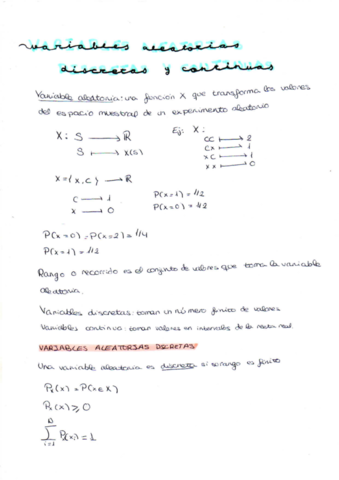 variables aleatorias
discretas y continuas
Variable aleatoria: una función X que transforma los valores
del espacio muestral de un experimento aleatorio
X: S → ℝ
S ⟼ X(S)
Ej: X:
CC ⟼ 2
CX ⟼ 1
XC ⟼ 1
XX ⟼ 0
X={X,C} → ℝ
C ⟼ 1
X ⟼ 0
P(X=1)=1/2
P(X=0)=1/2
P(X=0)=P(X=2)=1/4
P(X=1)=1/2
Rango o recorrido es el conjunto de valores que toma la variable
aleatoria.
Variables discretas: toman un número finito de valores
Variables continua: toman valores en intervalos de la recta real
VARIABLES ALEATORIAS DISCRETAS
Una variable aleatoria es discreta si su rango es finito
Pₓ(x) = P(x∈X)
Pₓ(x) ⩾ 0
n
∑ Pₓ(xᵢ) = 1
i=1